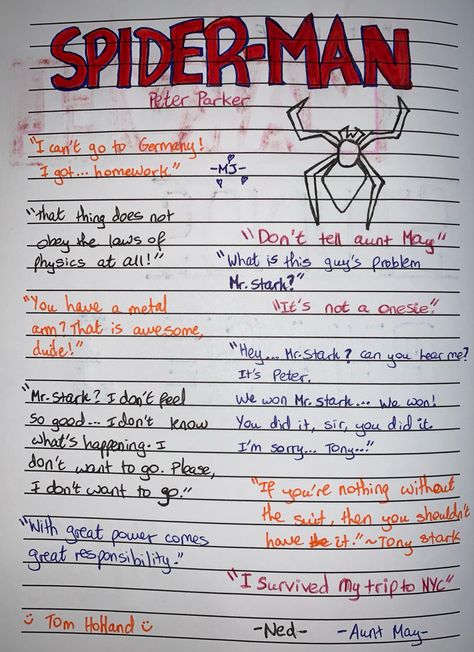 SPIDER-MAN
Peter Parker
"I can't go to Germany!
I got... homework"
-MJ-
"that thing does not
obey the laws of
physics at all!"
"Don't tell aunt May"
"What is this guy's problem
Mr. Stark?"
"You have a metal
arm? That is awesome,
dude!"
"It's not a onesie".
"Hey... Mr. Stark? can you hear me?
It's Peter.
We won Mr. Stark... We won!
You did it, sir, you did it.
I'm sorry... Tony..."
"Mr. Stark? I don't feel
so good... I don't know
what's happening. I
don't want to go. Please,
I don't want to go."
"If you're nothing without
the suit, then you shouldn't
have it." ~Tony Stark
"With great power comes
great responsibility."
"I survived my trip to NYC"
Tom Holland
-Ned-
-Aunt May-